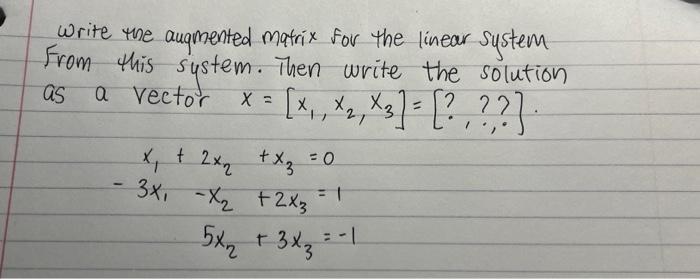 write the augmented matrix for the linear system
From this system. Then write the solution
as a vector x = [x₁, x₂, x₃] = [?, ?, ?].
x₁ + 2x₂ + x₃ = 0
- 3x₁ - x₂ + 2x₃ = 1
5x₂ + 3x₃ = -1